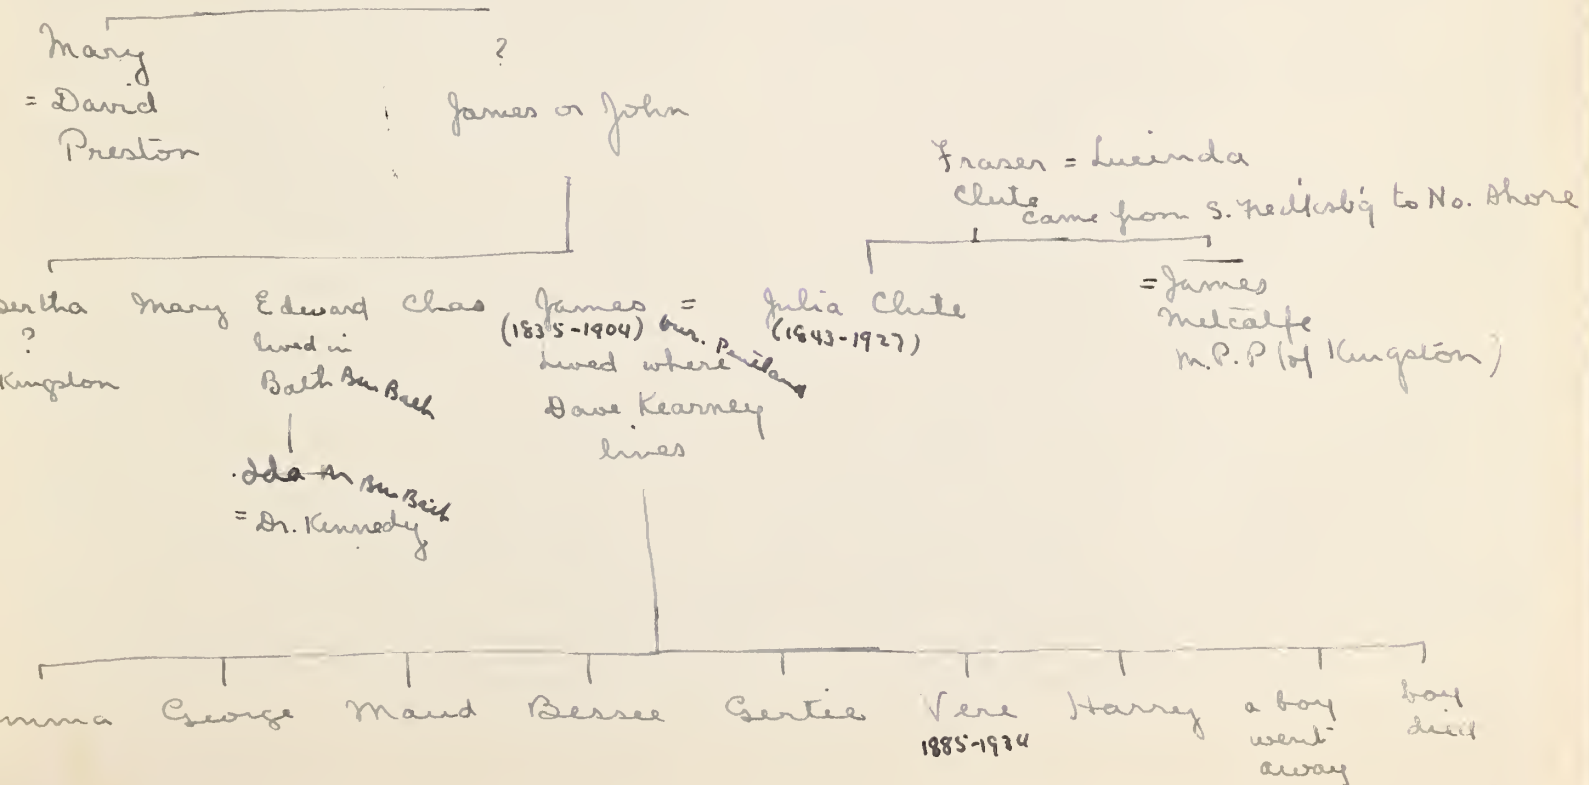 Mary
= David
Preston
?
James or John
Fraser = Lucinda
Clute
came from S. Fredksbg to No. Shore
ertha
?
Kingston
Mary
Edward
lived in
Bath Bur. Bath
Ida m Bur. Bath
= Dr. Kennedy
Chas
James =
(1835-1904) bur.
lived where
Dave Kearney
lives
Julia Clute
(1843-1927)
= James
Metcalfe
M.P.P (of Kingston)
mma
George
Maud
Bessee
Gertie
Vere
1885-1934
Harry
a boy
went
away
boy
died